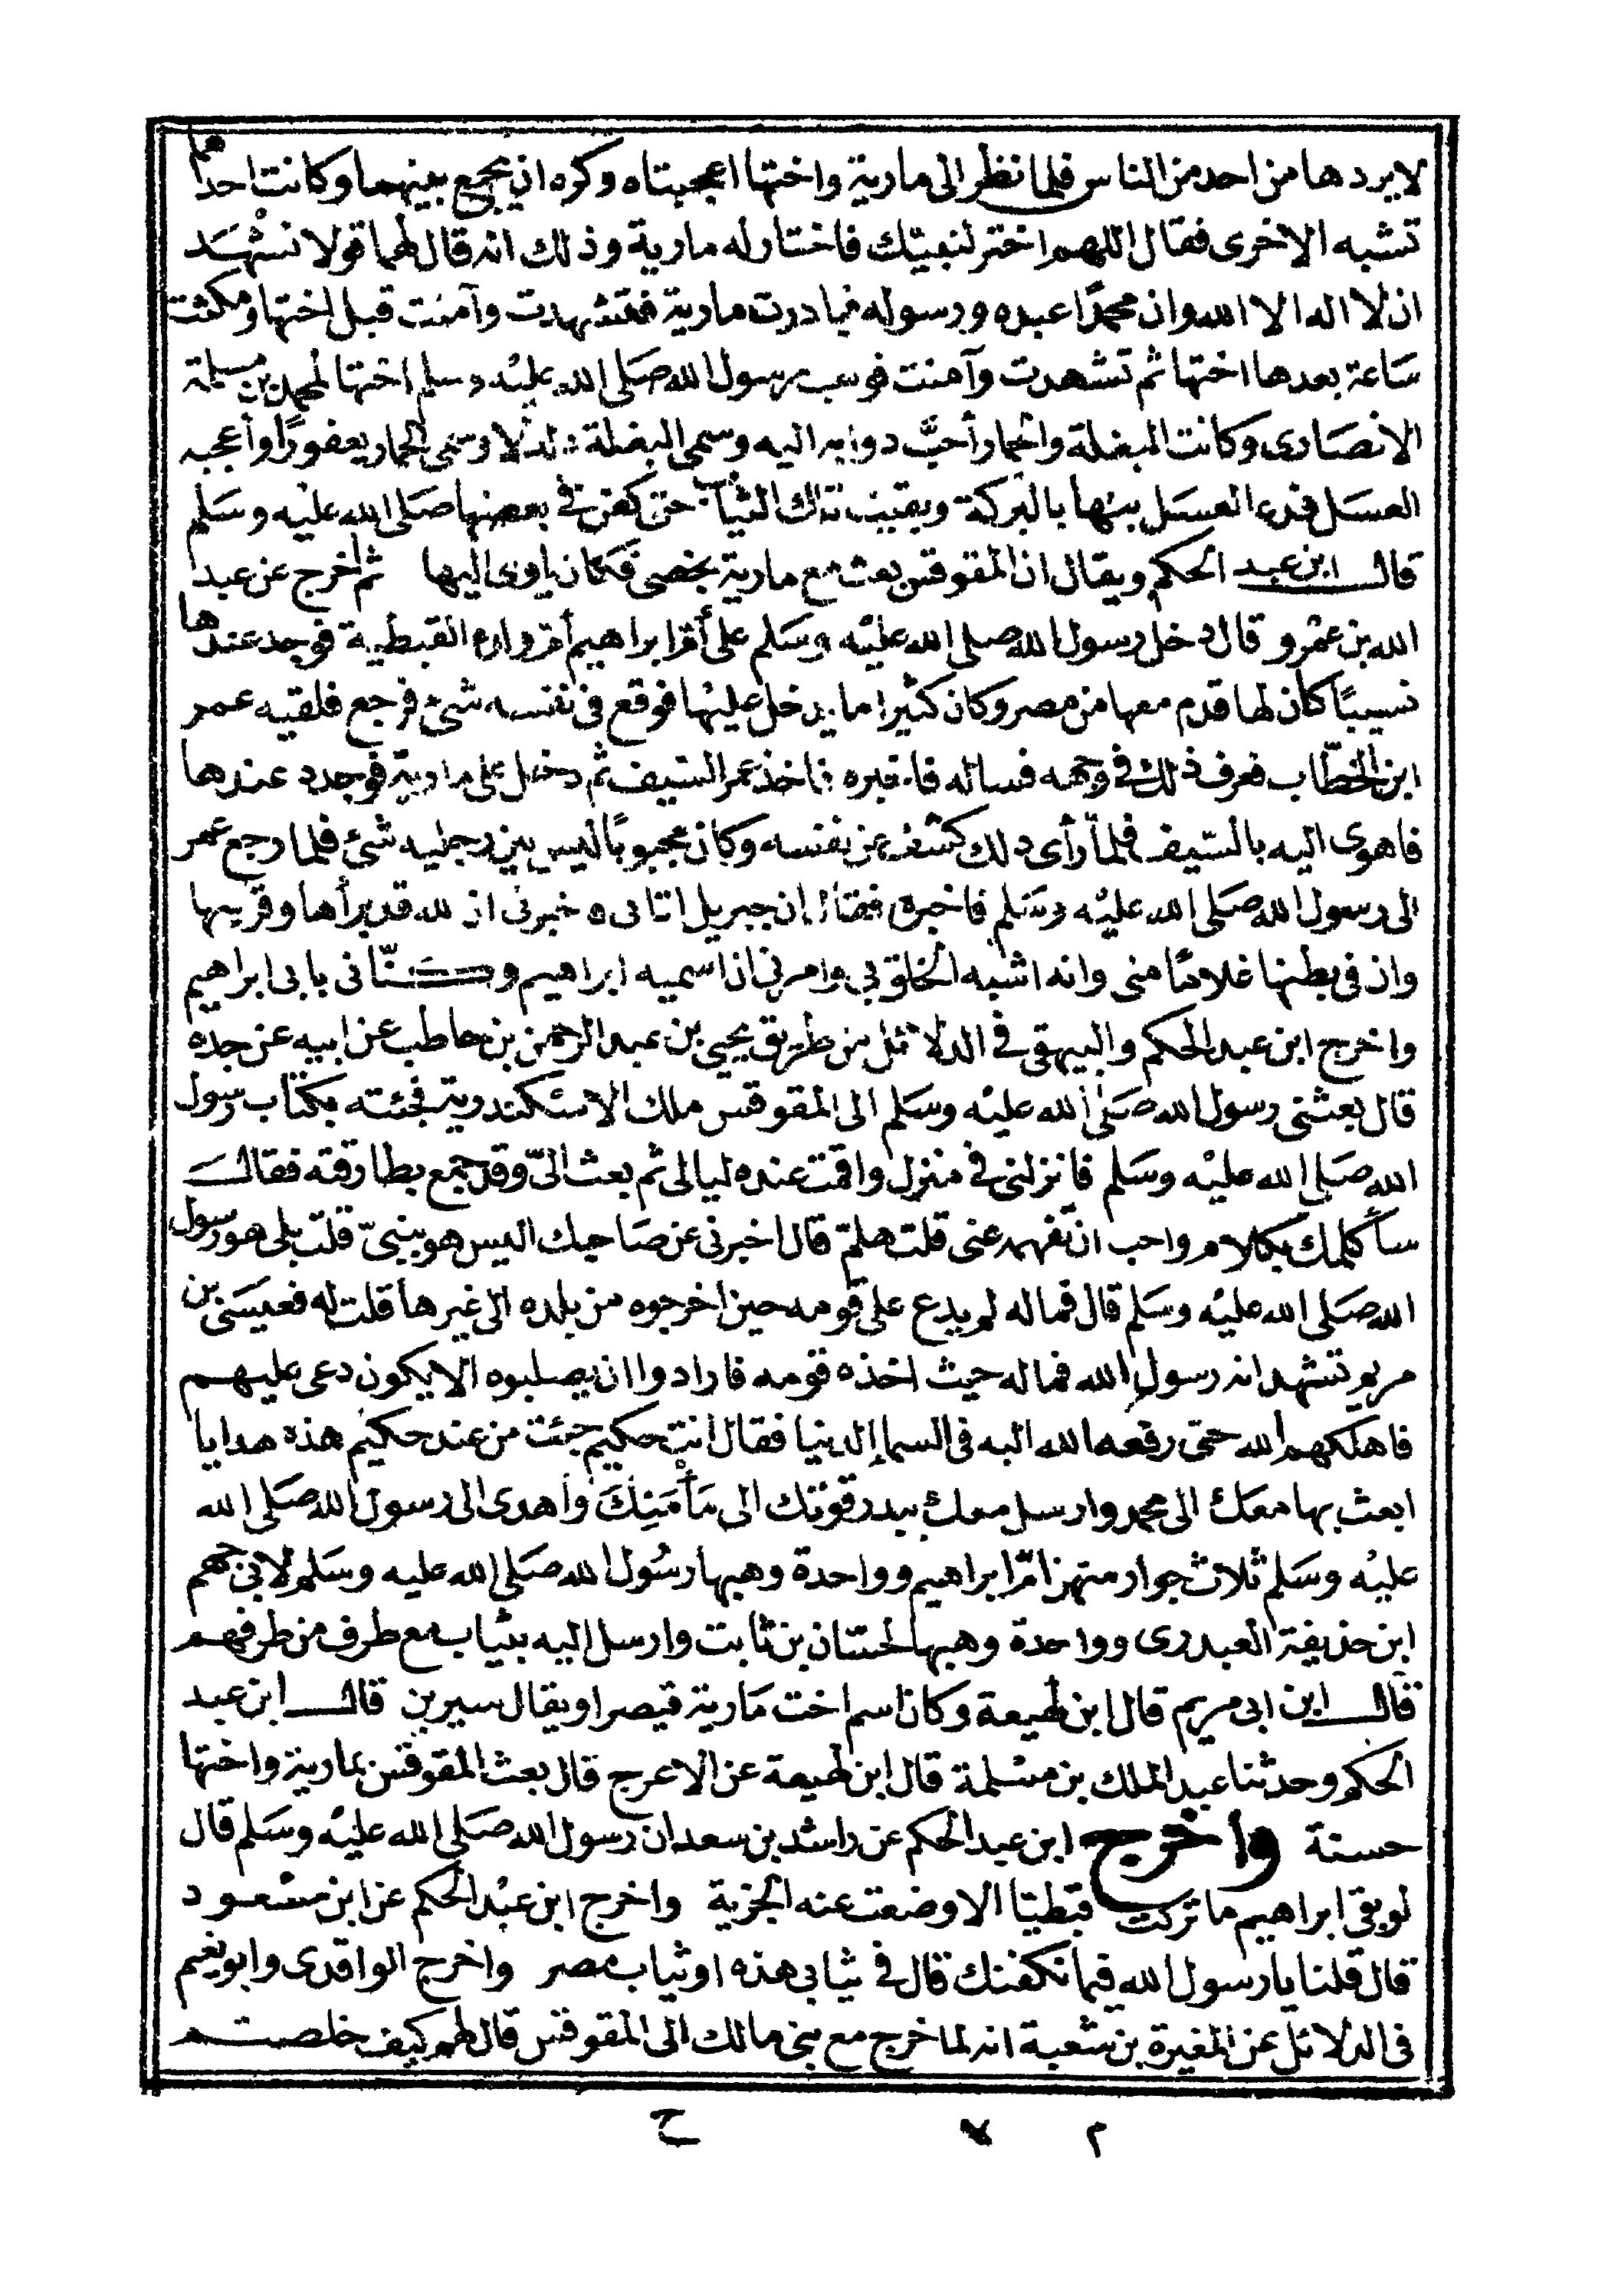 لا يردها من احد من الناس فلما نظر الى مارية واختها اعجبتاه وكره ان يجمع بينهما وكانت احداهما
تشبه الاخرى فقال اللهم اختر لنبيك فاختار له مارية وذلك انه قال لهما قولا نشهد
ان لا اله الا الله وان محمدًا عبده ورسوله فبادرت مارية فتشهدت وآمنت قبل اختها ومكثت
ساعة بعدها اختها ثم تشهدت وآمنت فوهب رسول الله صلى الله عليه وسلم اختها لمحمد بن مسلمة
الانصارى وكانت البغلة والحمار أحبَّ دوابه اليه وسمى البغلة دلدلا وسمى الحمار يعفورًا وأعجبه
العسل فدعا لعسل بنها بالبركة وبقيت تلك الثياب حتى كفن فى بعضها صلى الله عليه وسلم
قال ابن عبد الحكم ويقال ان المقوقس بعث مع مارية بخصى فكان ياوى اليها ثم اخرج عن عبد
الله بن عمرو قال دخل رسول الله صلى الله عليه وسلم على أم ابراهيم أم ولده القبطية فوجد عندها
نسيبًا كان لها قدم معها من مصر وكان كثيرا ما يدخل عليها فوقع فى نفسه شئ فرجع فلقيه عمر
ابن الخطاب فعرف ذلك فى وجهه فساله فاخبره فاخذ عمر السيف ثم دخل على مارية فوجده عندها
فاهوى اليه بالسيف فلما رأى ذلك كشف عن نفسه وكان مجبوبًا ليس بين رجليه شئ فلما رجع عمر
الى رسول الله صلى الله عليه وسلم فاخبره فقال إن جبريل اتانى فاخبرنى ان الله قد برأها وقريبها
وان فى بطنها غلامًا منى وانه اشبه الخلق بى وامرنى ان اسميه ابراهيم وكنّانى بابى ابراهيم
واخرج ابن عبد الحكم والبيهقى فى الدلائل من طريق يحيى بن عبد الرحمن بن حاطب عن ابيه عن جده
قال بعثنى رسول الله صلى الله عليه وسلم الى المقوقس ملك الاسكندرية فجئته بكتاب رسول
الله صلى الله عليه وسلم فانزلنى فى منزل واقمت عنده ليالى ثم بعث الىّ وقد جمع بطارقته فقال
سأكلمك بكلام واحب ان تفهمه عنى قلت هلم قال اخبرنى عن صاحبك اليس هو بنبىّ قلت بلى هو رسول
الله صلى الله عليه وسلم قال فما له لم يدع على قومه حين اخرجوه من بلده الى غيرها قلت له فعيسى بن
مريم تشهد انه رسول الله فما له حيث اخذه قومه فارادوا ان يصلبوه الا يكون دعى عليهم
فاهلكهم الله حتى رفعه الله اليه فى السما الدنيا فقال انت حكيم جئت من عند حكيم هذه هدايا
ابعث بها معك الى محمد وارسل معك بيدرقونك الى مأمنك وأهدى الى رسول الله صلى الله
عليه وسلم ثلاث جوار منهن امّ ابراهيم وواحدة وهبها رسول الله صلى الله عليه وسلم لابى جهم
ابن حذيفة العبدرى وواحدة وهبها لحسان بن ثابت وارسل اليه بثياب مع طرف من طرفهم
قال ابن ابى مريم قال ابن لهيعة وكان اسم اخت مارية قيصرا ويقال سيرين قال ابن عبد
الحكم وحدثنا عبد الملك بن مسلمة قال ابن لهيعة عن الاعرج قال بعث المقوقس بمارية واختها
حسنة واخرج ابن عبد الحكم عن راشد بن سعد ان رسول الله صلى الله عليه وسلم قال
لو بقى ابراهيم ما تركت قبطيًا الا وضعت عنه الجزية واخرج ابن عبد الحكم عن ابن مسعود
قال قلنا يا رسول الله فيما نكفنك قال فى ثيابى هذه او ثياب مصر واخرج الواقدى وابو نعيم
فى الدلائل عن المغيرة بن شعبة انه لما خرج مع بنى مالك الى المقوقس قال لهم كيف خلصتم